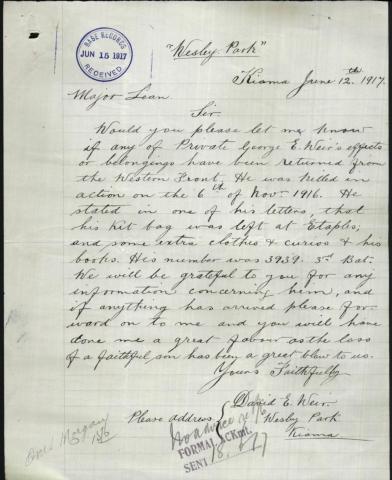 BASE RECORDS
JUN 15 1917
RECEIVED
"Wesley Park"
Kiama June 12th 1917.
Major Lean
Sir
Would you please let me know
if any of Private George E. Weir's effects
or belongings have been returned from
the Western Front. He was killed in
action on the 6th of Nov. 1916. He
stated in one of his letters, that
his Kit bag was left at Etaples,
and some extra clothes & curios & his
books. His number was 3939. 3rd Bat.
We will be grateful to you for any
information concerning him, and
if anything has arrived please for-
ward on to me and you will have
done me a great favour as the loss
of a faithful son has been a great blow to us.
Yours Faithfully
David E. Weir
Please address Wesley Park
Kiama
FORMAL ACKmt.
SENT 18